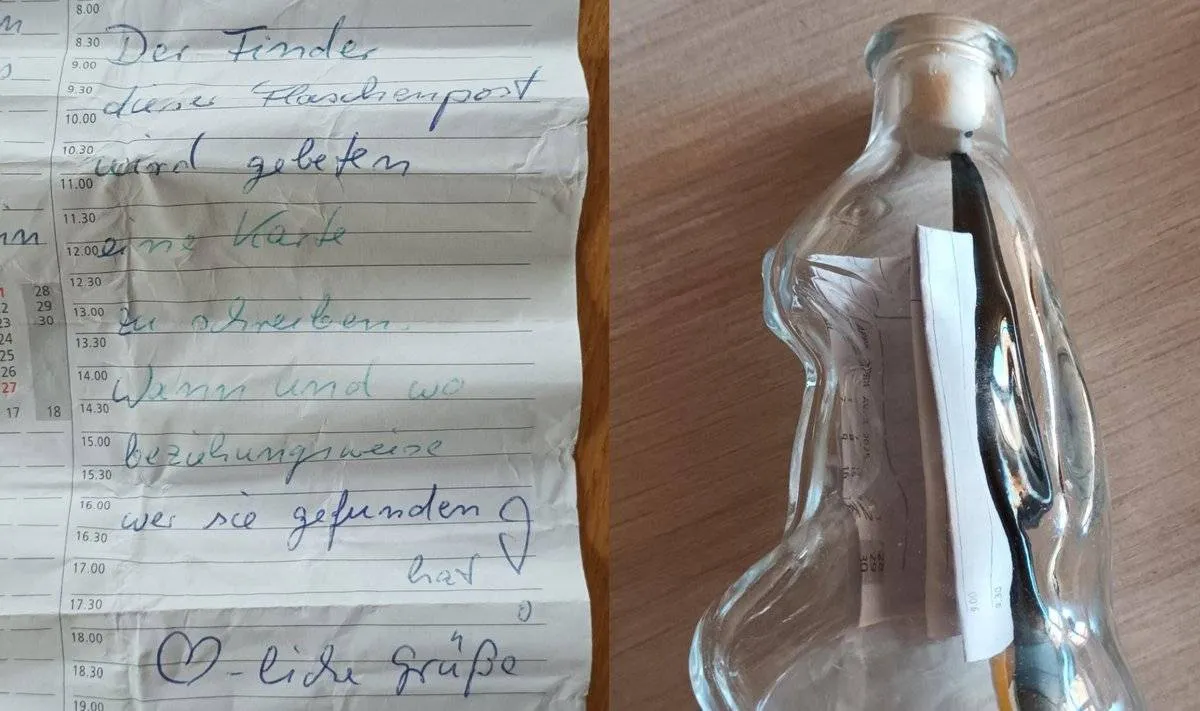 8.00
8.30 Der Finder
9.00
9.30 dieser Flaschenpost
10.00
10.30 wird gebeten
11.00
11.30
12.00 eine Karte
12.30
13.00 zu schreiben.
13.30
14.00 Wann und wo
14.30
15.00 beziehungsweise
15.30
16.00 wer sie gefunden
16.30
17.00 hat!
17.30
18.00
18.30 ♡-liche Grüße
19.00
28
22 29
23 30
24
25
26
27
17 18
28
29
30
9.00
9.30